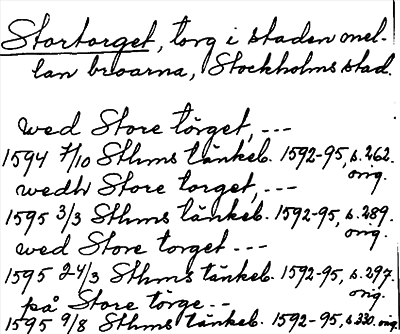 Stortorget, torg i staden mel-
lan broarna, Stockholms stad.
wed Store törget, ---
1594 7/10 Sthms tänkeb. 1592-95, s.262.
orig.
wedh Store torget, ---
1595 3/3 Sthms tänkeb. 1592-95, s.289.
orig.
wed Store torget ---
1595 24/3 Sthms tänkeb. 1592-95, s.297.
orig.
på Store törge ---
1595 9/8 Sthms tänkeb. 1592-95, s.330. orig.